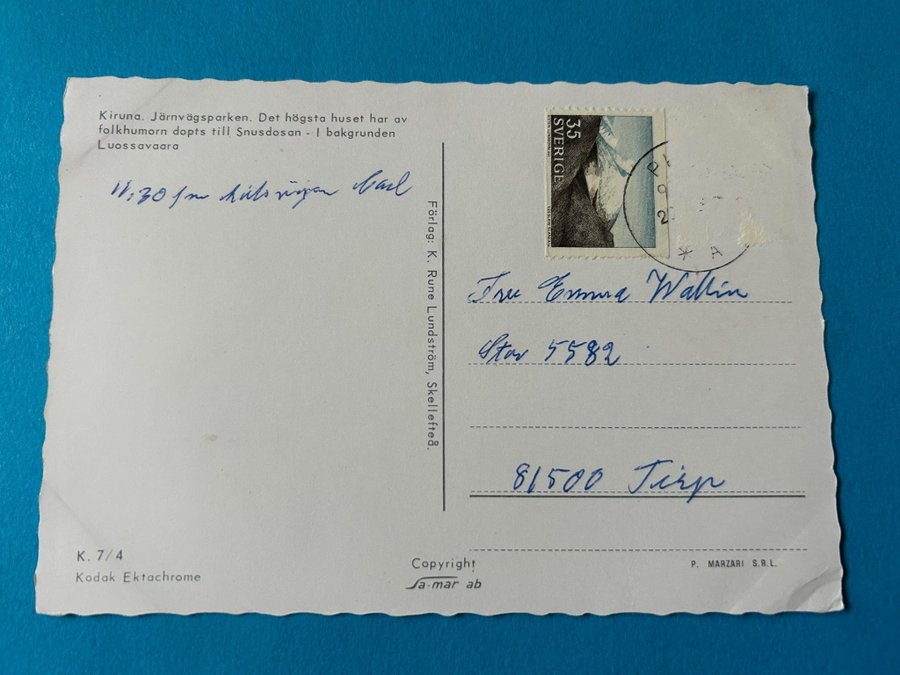 Kiruna. Järnvägsparken. Det högsta huset har av
folkhumorn dopts till Snusdosan - I bakgrunden
Luossavaara
11,30 fm
Förlag: K. Rune Lundström, Skellefteå.
35
SVERIGE
Emma Wallin
5582
81500 Tierp
K. 7/4
Kodak Ektachrome
Copyright
Sa-mar ab
P. MARZARI S.R.L.